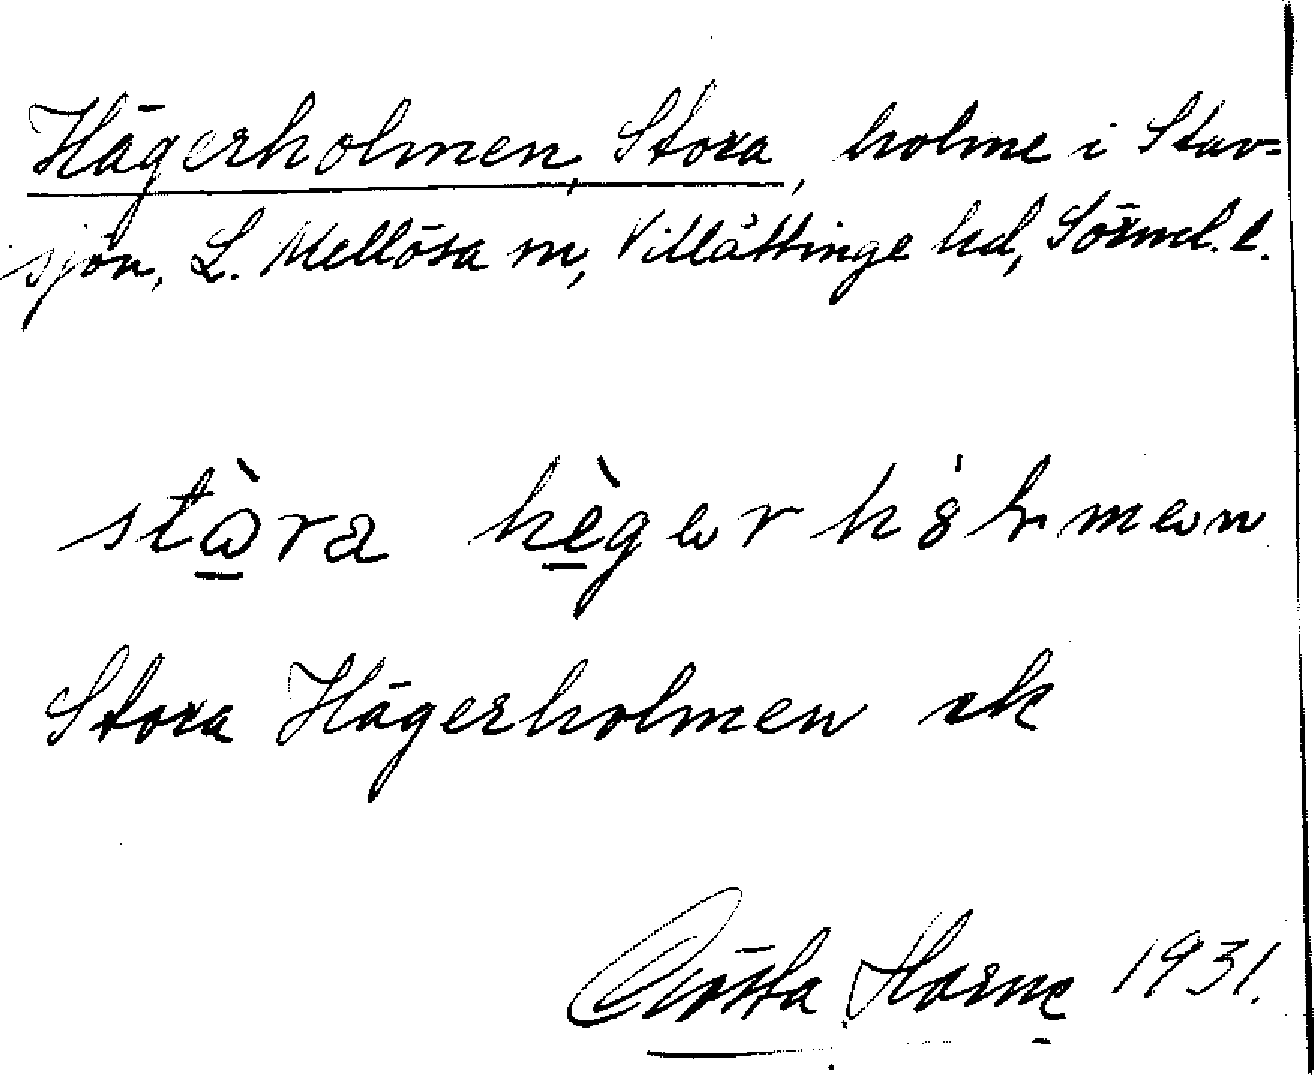 Hägerholmen, Stora, holme i Stav-
sjön, L. Mellösa sn, Villåttinge hd, Sörml. l.
stò̱ra hè̱gər hóĺmən
Stora Hägerholmen ek
Gösta Horne 1931.